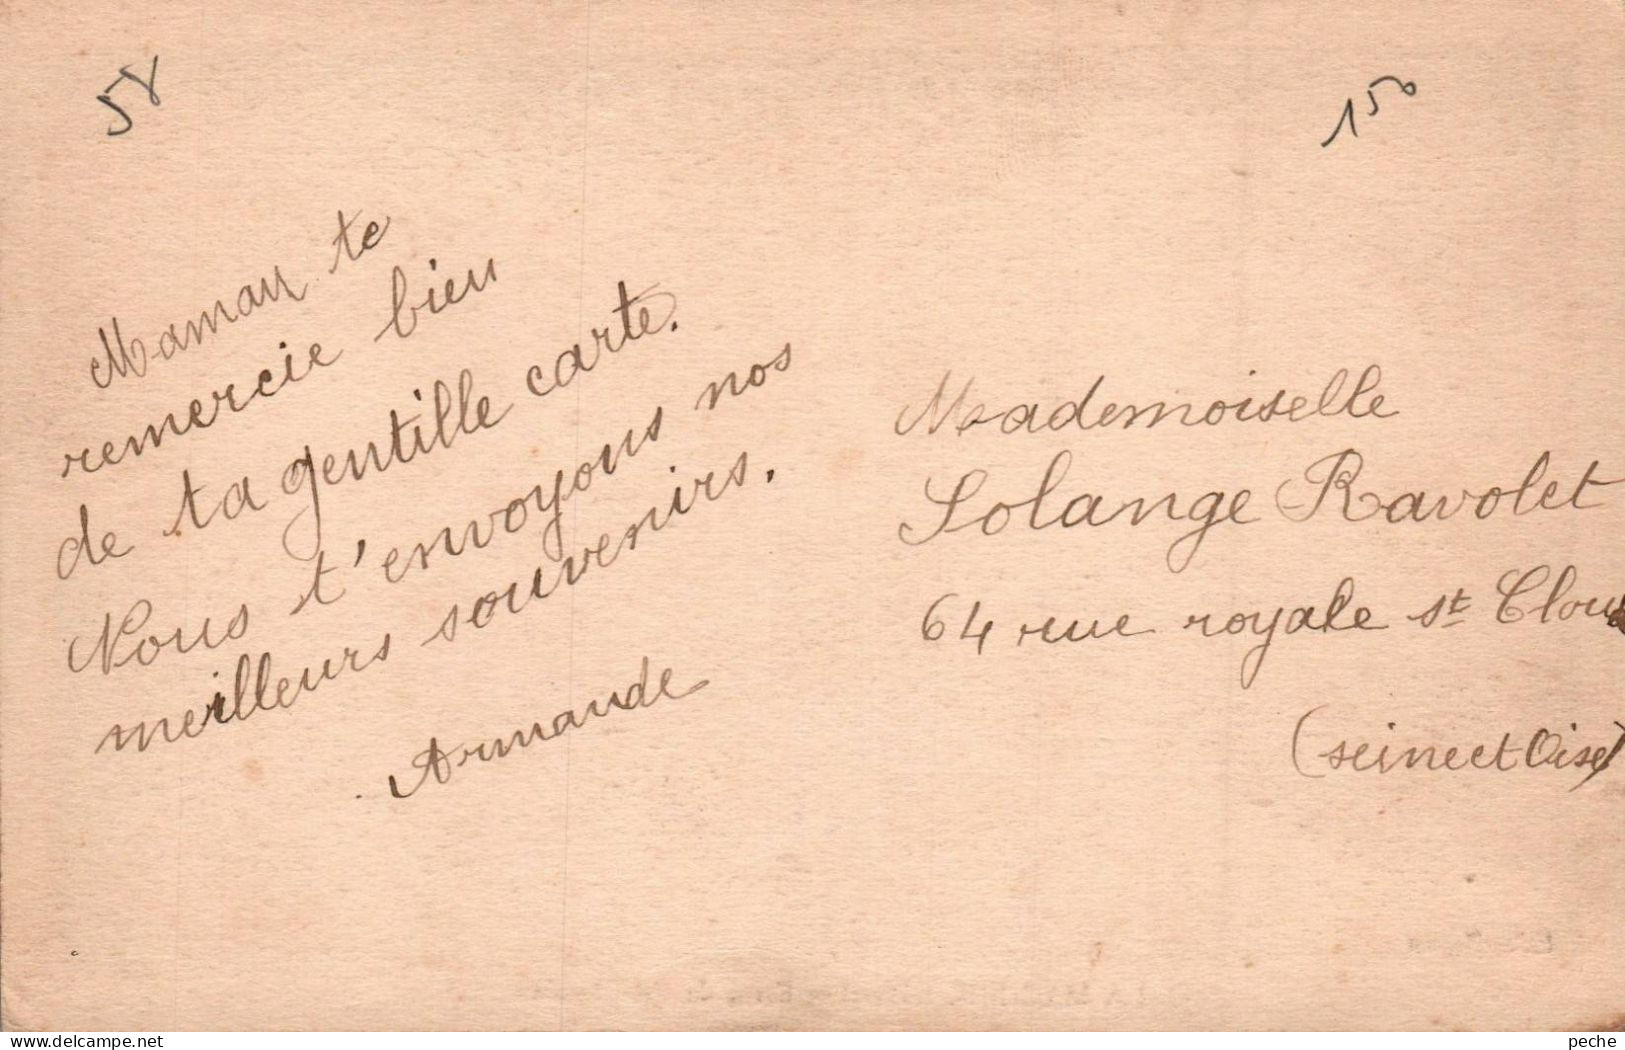 58
150
Maman te
remercie bien
de ta gentille carte.
Nous t'envoyons nos
meilleurs souvenirs.
Armande
Mademoiselle
Solange Ravolet
64 rue royale st Cloud
(seine et Oise)
www.delcampe.net
peche